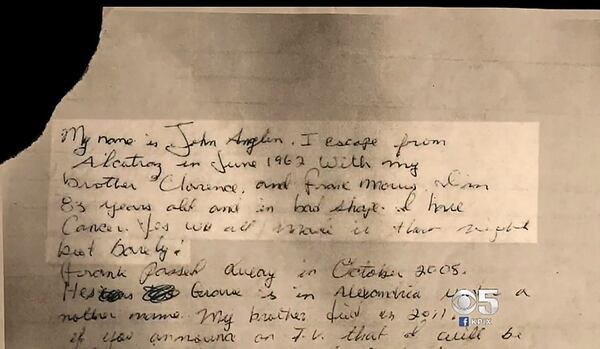 My name is John Anglin. I escape from
Alcatraz in June 1962 With my
brother Clarence, and Frank Morris. I'm
83 years old and in bad shape. I have
Cancer. Yes we all made it that night
but barely!
Frank passed away in October 2005.
Hes Grave is in Alexandria under a
nother name. My brother died in 2011.
if you announce on T.V. that I will be
5
f KPIX